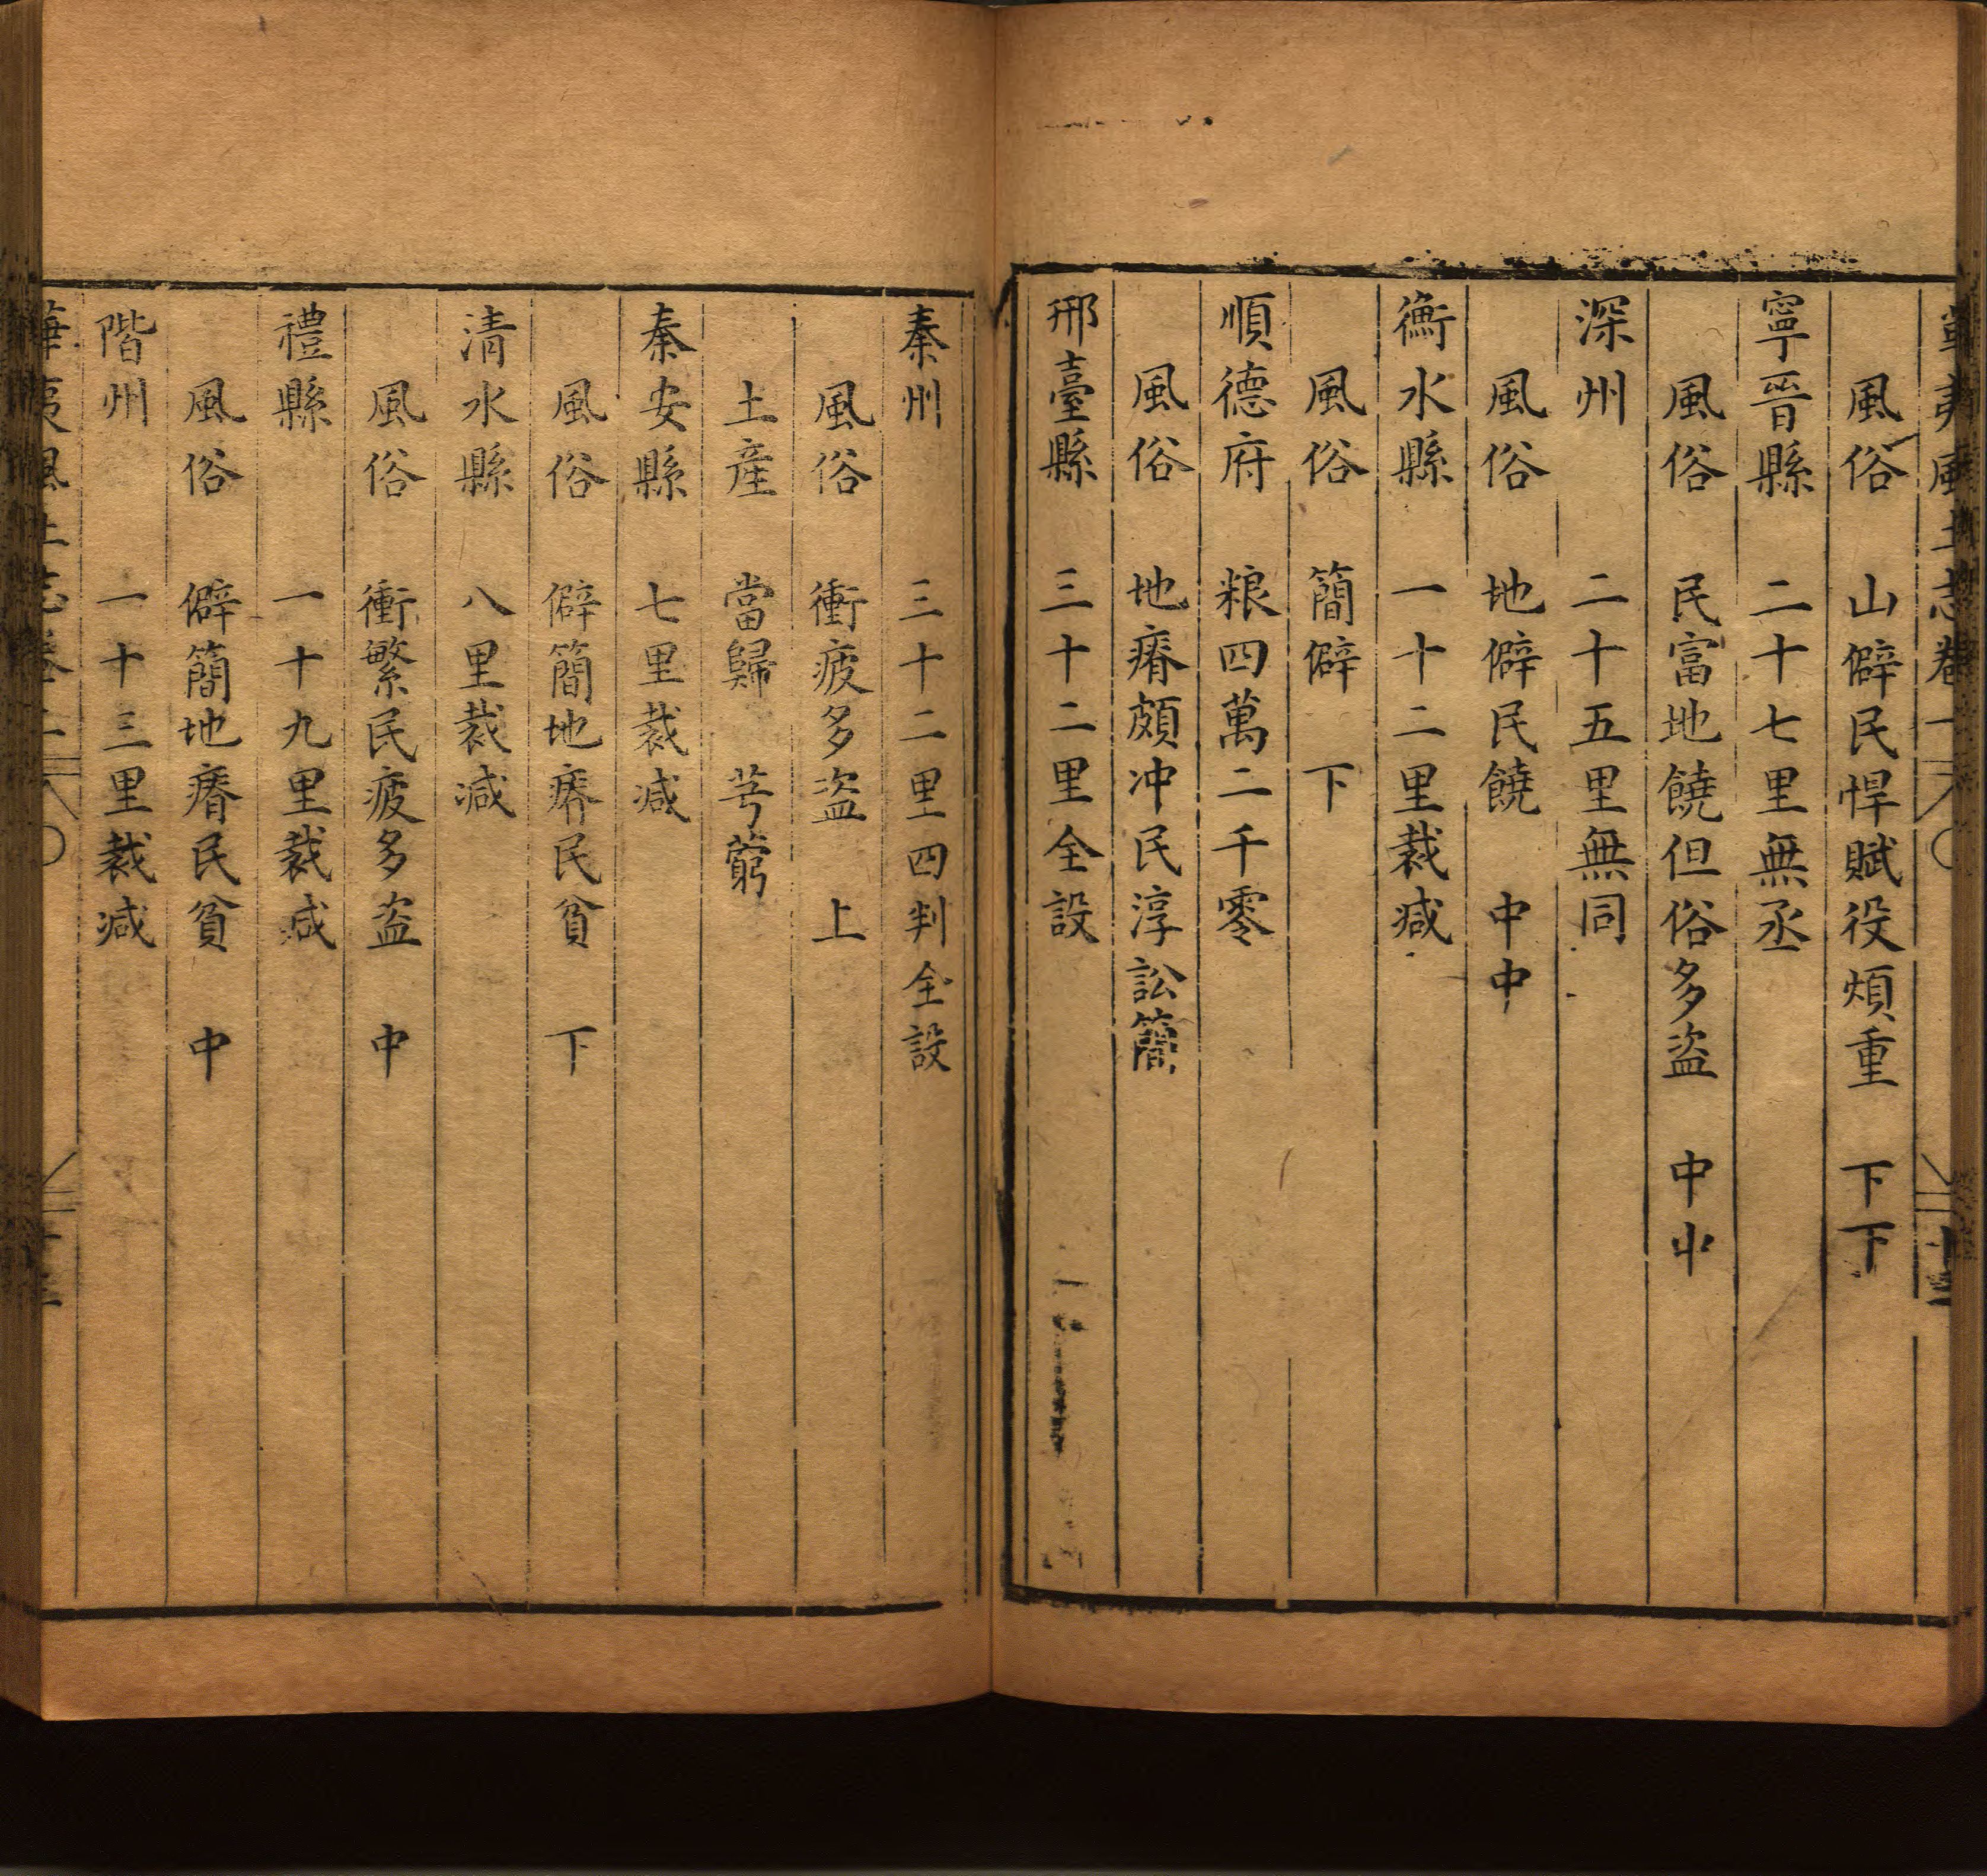 華夷風土志卷一
風俗 山僻民悍賦役煩重 下下
寧晉縣 二十七里無丞
風俗 民富地饒但俗多盜 中中
深州 二十五里無同
風俗 地僻民饒 中中
衡水縣 一十二里裁减
風俗 簡僻 下
順德府 粮四萬二千零
風俗 地瘠頗冲民淳訟簡
邢臺縣 三十二里全設
秦州 三十二里四判全設
風俗 衝疲多盜 上
土産 當歸 芎藭
秦安縣 七里裁减
風俗 僻簡地瘠民貧 下
清水縣 八里裁减
風俗 衝繁民疲多盜 中
禮縣 一十九里裁减
風俗 僻簡地瘠民貧 中
階州 一十三里裁减
華夷風土志卷二